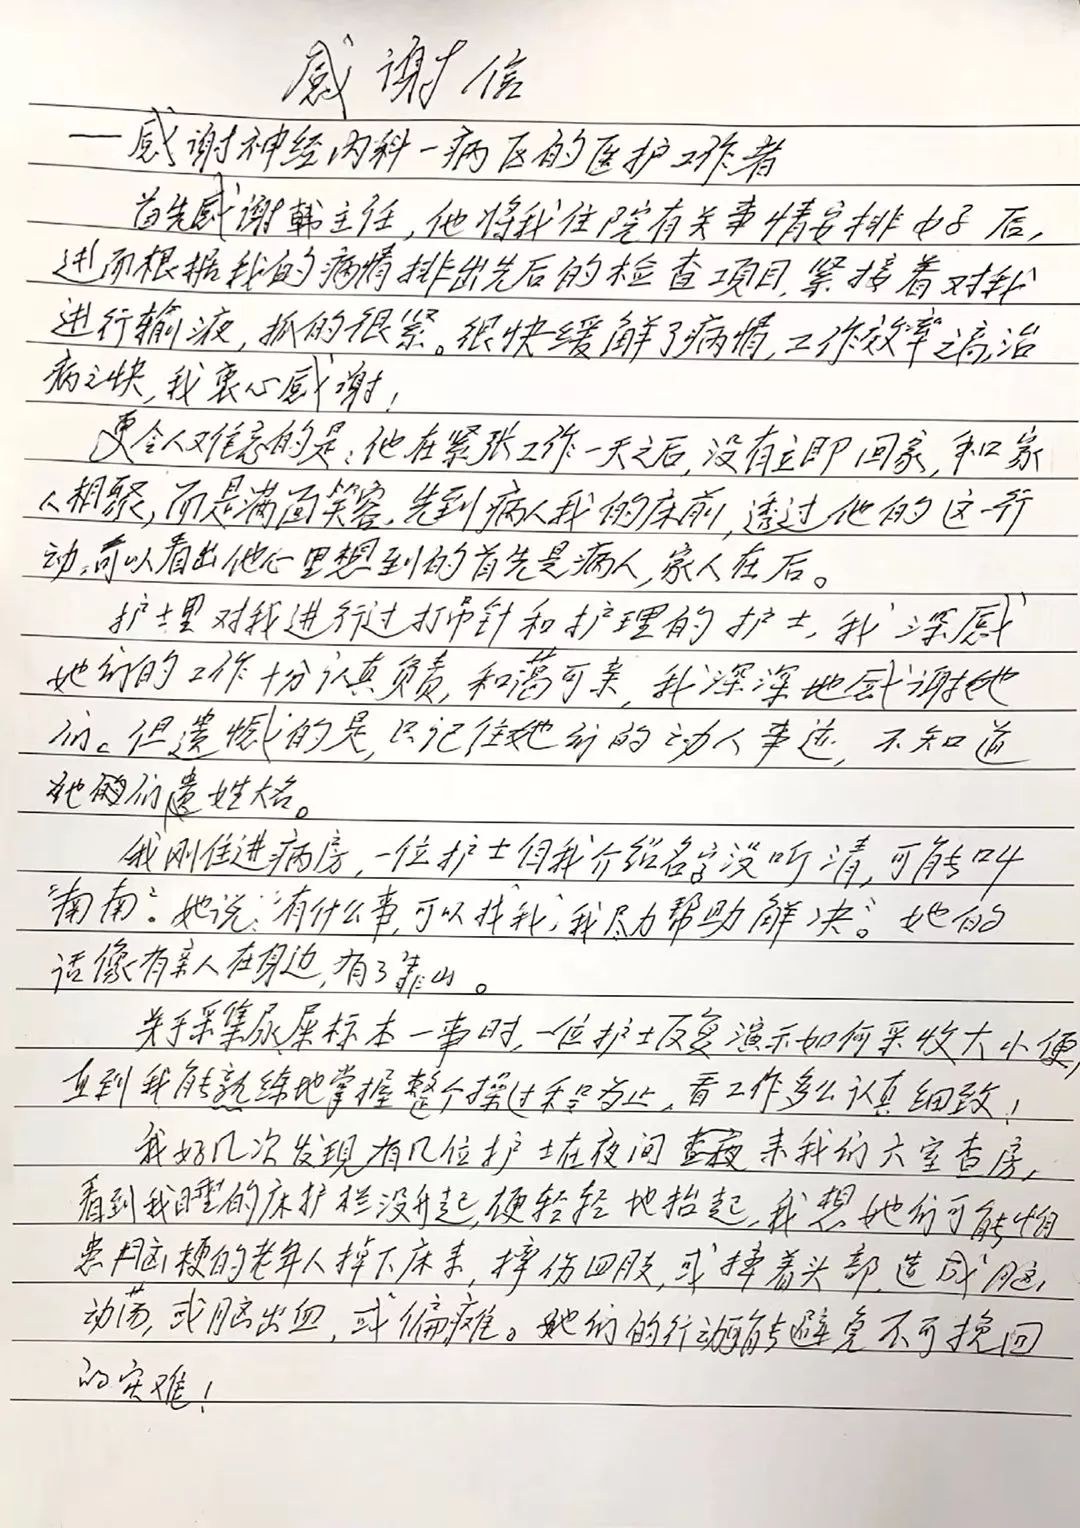 感谢信
——感谢神经内科一病区的医护工作者
首先感谢韩主任，他将我住院有关事情安排好后，
进而根据我的病情排出先后的检查项目，紧接着对我
进行输液，抓的很紧。很快缓解了病情，工作效率之高，治
病之快，我衷心感谢！
更令人难忘的是：他在紧张工作一天之后，没有立即回家，和家
人相聚，而是满面笑容，先到病人我的床前，透过他的这一行
动，可以看出他心里想到的首先是病人，家人在后。
护士里对我进行过打吊针和护理的护士，我深感
她们的工作十分认真负责，和蔼可亲，我深深地感谢她
们。但遗憾的是，只记住她们的动人事迹，不知道
她们姓大名。
我刚住进病房，一位护士自我介绍名字没听清，可能叫
“南南”。她说：“有什么事，可以找我，我尽力帮助解决”。她的
话像有亲人在身边，有了靠山。
关于采集尿屎标本一事时，一位护士反复演示如何采收大小便，
直到我能熟练地掌握整个操过程为止，看工作多么认真细致！
我好几次发现有几位护士在夜间来我们六室查房，
看到我睡的床护栏没升起，便轻轻地抬起，我想她们可能怕
患脑梗的老年人掉下床来，摔伤四肢，或摔着头部，造成脑
动荡，或脑出血，或偏瘫。她们的行动能避免不可挽回
的灾难！